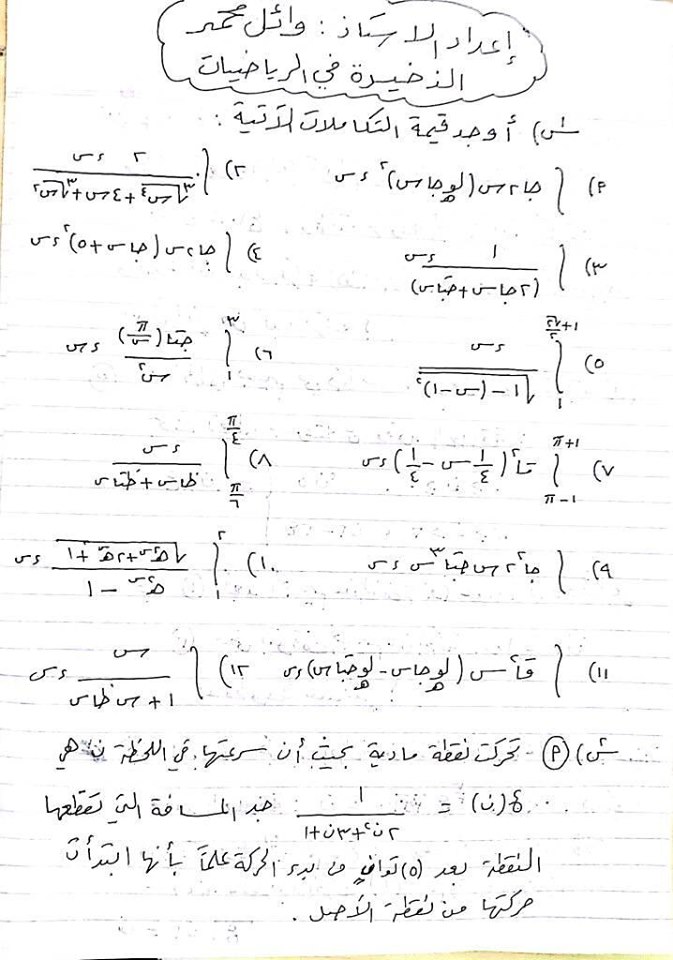 إعداد الاستاذ : وائل محمد
الذخيرة في الرياضيات
س) أوجد قيمة التكاملات الآتية :
١) ∫ جا٢س (لو_هـ جاس)^٢ ءس
٢) ∫ ٢ ءس / (∛س^٤ + ٤س + ∛س^٢)
٣) ∫ ١ / (٢جاس + جتاس) ءس
٤) ∫ جا٢س (جاس + ٥)^٢ ءس
٥) ∫_١^{١+√٢/٢} ءس / √(١ - (س-١)^٢)
٦) ∫_١^٣ جتا(π/س) / س^٢ ءس
٧) ∫_{١-π}^{١+π} قا^٢(١/٤ س - ١/٤) ءس
٨) ∫_{π/٦}^{π/٤} ءس / (ظاس + ظتاس)
٩) ∫ جا^٢ ٢س جتا^٣ س ءس
١٠) ∫_١^٢ √(هـ^{٢س} + ٢هـ^س + ١) / (هـ^{٢س} - ١) ءس
١١) ∫ قا^٢س (لو_هـ جاس - لو_هـ جتاس) ءس
١٢) ∫ س / (١ + س ظاس) ءس
س) (P) - تحركت نقطة مادية بحيث أن سرعتها في اللحظة ن هي
ع(ن) = ١ / (٢ن^٢ + ٣ن + ١) جد المسافة التي تقطعها
النقطة بعد (٥) ثواني من بدء الحركة علماً بأنها ابتدأت
حركتها من نقطة الأصل .